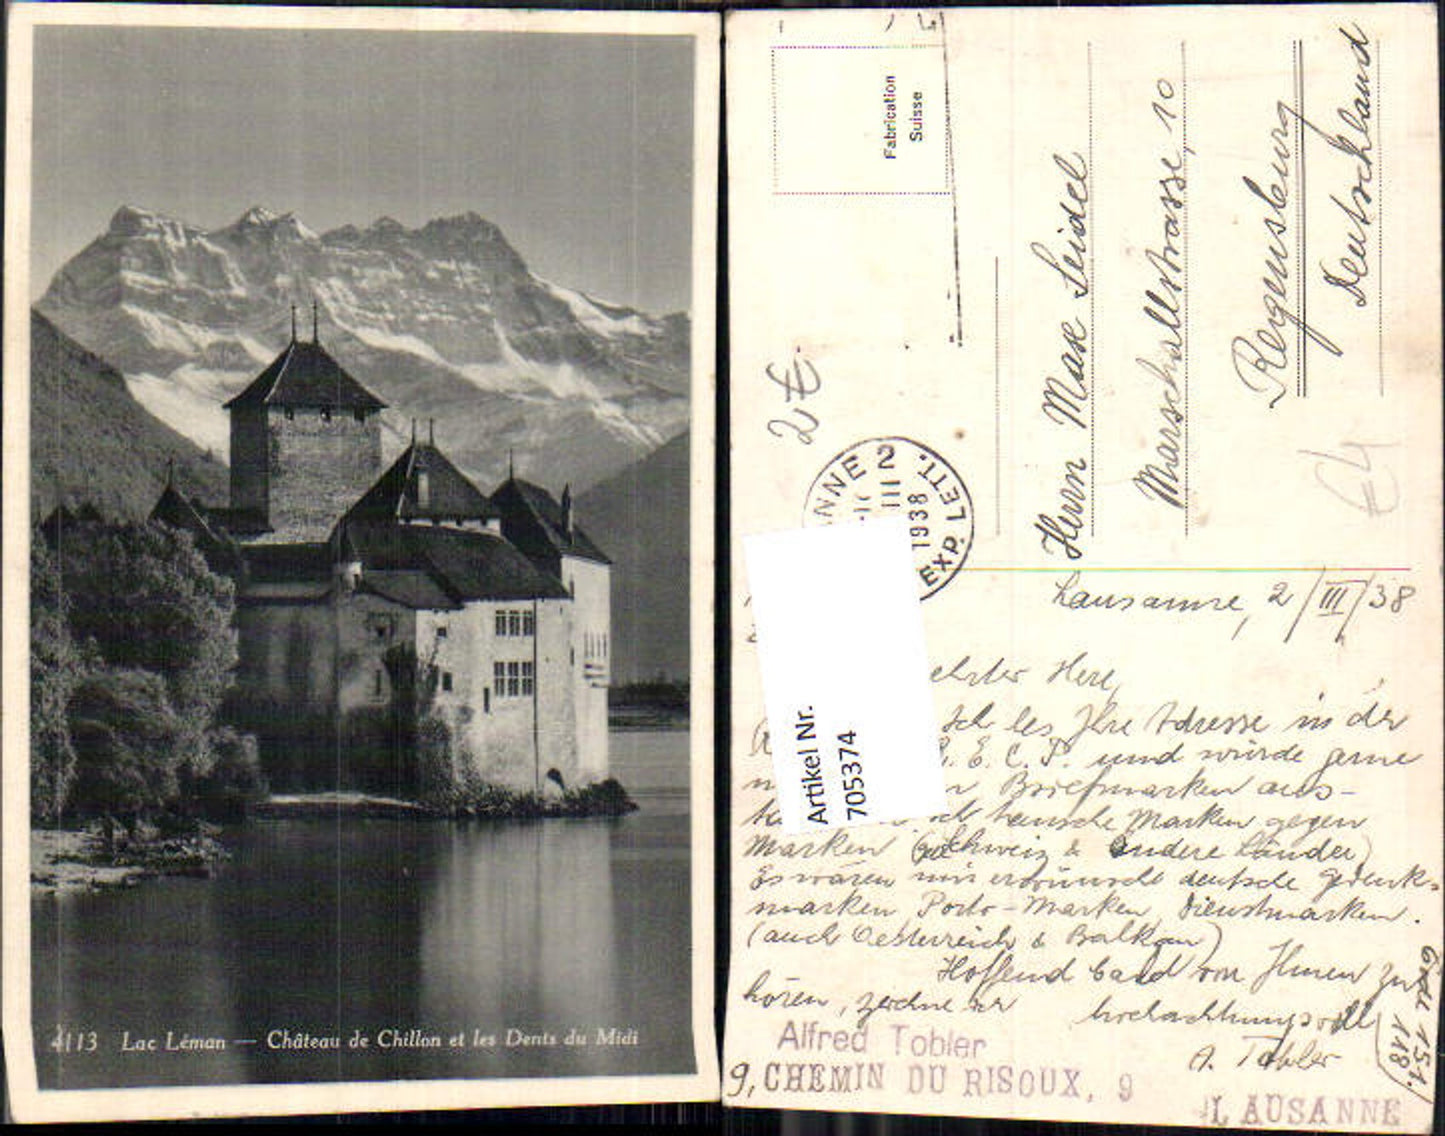 4113 Lac Léman — Château de Chillon et les Dents du Midi
Fabrication
Suisse
2€
NNE 2
III
1938
EXP. LETT.
Herrn Max Seidel
Marschallstrasse, 10
Regensburg
Deutschland
€4
Artikel Nr.
705374
Lausanne, 2/III/38
Herr,
Ihre Adresse in der
E. C. P. und würde gerne
Briefmarken aus-
tausche Marken gegen
Marken (Schweiz & andere Länder)
Es wären mir erwünscht deutsche Gedenk-
marken, Porto-Marken, Dienstmarken.
(auch Oesterreich & Balkan)
Hoffend bald von Ihnen zu
hören, zeichne er
hochachtungsvoll
A. Tobler
Alfred Tobler
9, CHEMIN DU RISOUX, 9
LAUSANNE
151.
118.